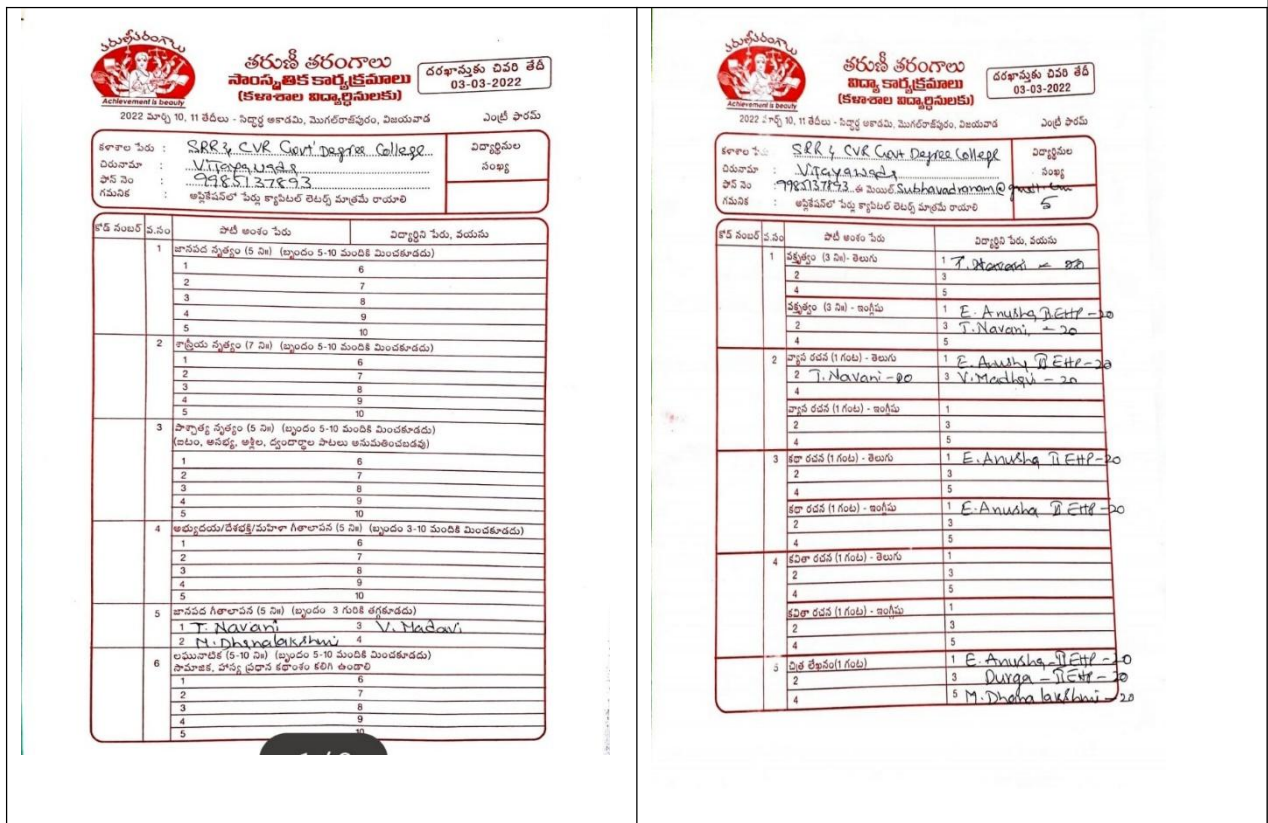 తరుణీ తరంగాలు
Achievement is beauty
తరుణీ తరంగాలు
సాంస్కృతిక కార్యక్రమాలు
(కళాశాల విద్యార్థినులకు)
దరఖాస్తుకు చివరి తేదీ
03-03-2022
2022 మార్చి 10, 11 తేదీలు - సిద్ధార్థ అకాడమి, మొగల్‌రాజ్‌పురం, విజయవాడ
ఎంట్రీ ఫారమ్
కళాశాల పేరు : SRR & CVR Govt' Degree College
విద్యార్థినుల
సంఖ్య
చిరునామా : Vijayawada
ఫోన్ నెం : 9985137893
గమనిక : అప్లికేషన్‌లో పేర్లు క్యాపిటల్ లెటర్స్ మాత్రమే రాయాలి
కోడ్ నంబర్ వ.సం పోటీ అంశం పేరు విద్యార్థిని పేరు, వయసు
1 జానపద నృత్యం (5 ని॥) (బృందం 5-10 మందికి మించకూడదు)
1 6
2 7
3 8
4 9
5 10
2 శాస్త్రీయ నృత్యం (7 ని॥) (బృందం 5-10 మందికి మించకూడదు)
1 6
2 7
3 8
4 9
5 10
3 పాశ్చాత్య నృత్యం (5 ని॥) (బృందం 5-10 మందికి మించకూడదు)
(ఐటం, అసభ్య, అశ్లీల, ద్వందార్థాల పాటలు అనుమతించబడవు)
1 6
2 7
3 8
4 9
5 10
4 అభ్యుదయ/దేశభక్తి/మహిళా గీతాలాపన (5 ని॥) (బృందం 3-10 మందికి మించకూడదు)
1 6
2 7
3 8
4 9
5 10
5 జానపద గీతాలాపన (5 ని॥) (బృందం 3 గురికి తగ్గకూడదు)
1 T. Navani 3 V. Madavi
2 M. Dhanalakshmi 4
6 లఘునాటిక (5-10 ని॥) (బృందం 5-10 మందికి మించకూడదు)
సామాజిక, హాస్య ప్రధాన కథాంశం కలిగి ఉండాలి
1 6
2 7
3 8
4 9
5 10
తరుణీ తరంగాలు
Achievement is beauty
తరుణీ తరంగాలు
విద్యా కార్యక్రమాలు
(కళాశాల విద్యార్థినులకు)
దరఖాస్తుకు చివరి తేదీ
03-03-2022
2022 మార్చి 10, 11 తేదీలు - సిద్ధార్థ అకాడమి, మొగల్‌రాజ్‌పురం, విజయవాడ
ఎంట్రీ ఫారమ్
కళాశాల పేరు : SRR & CVR Govt Degree College
విద్యార్థినుల
సంఖ్య
5
చిరునామా : Vijayawada
ఫోన్ నెం : 9985137893 ఈ మెయిల్
గమనిక : అప్లికేషన్‌లో పేర్లు క్యాపిటల్ లెటర్స్ మాత్రమే రాయాలి
కోడ్ నంబర్ వ.సం పోటీ అంశం పేరు విద్యార్థిని పేరు, వయసు
1 వక్తృత్వం (3 ని॥)- తెలుగు 1 T.
2 3
4 5
వక్తృత్వం (3 ని॥) - ఇంగ్లీషు 1 E. Anusha II EHP - 20
2 3 T. Navani, - 20
4 5
2 వ్యాస రచన (1 గంట) - తెలుగు 1 E. Anusha II EHP - 20
2 T. Navani - 20 3 V. Madhavi - 20
4
వ్యాస రచన (1 గంట) - ఇంగ్లీషు 1
2 3
4 5
3 కథా రచన (1 గంట) - తెలుగు 1 E. Anusha II EHP - 20
2 3
4 5
కథా రచన (1 గంట) - ఇంగ్లీషు 1 E. Anusha II EHP - 20
2 3
4 5
4 కవితా రచన (1 గంట) - తెలుగు 1
2 3
4 5
కవితా రచన (1 గంట) - ఇంగ్లీషు 1
2 3
4 5
5 చిత్ర లేఖనం(1 గంట) 1 E. Anusha - II EHP - 20
2 3 Durga - II EHP - 20
4 5 M. Dhanalakshmi - 20